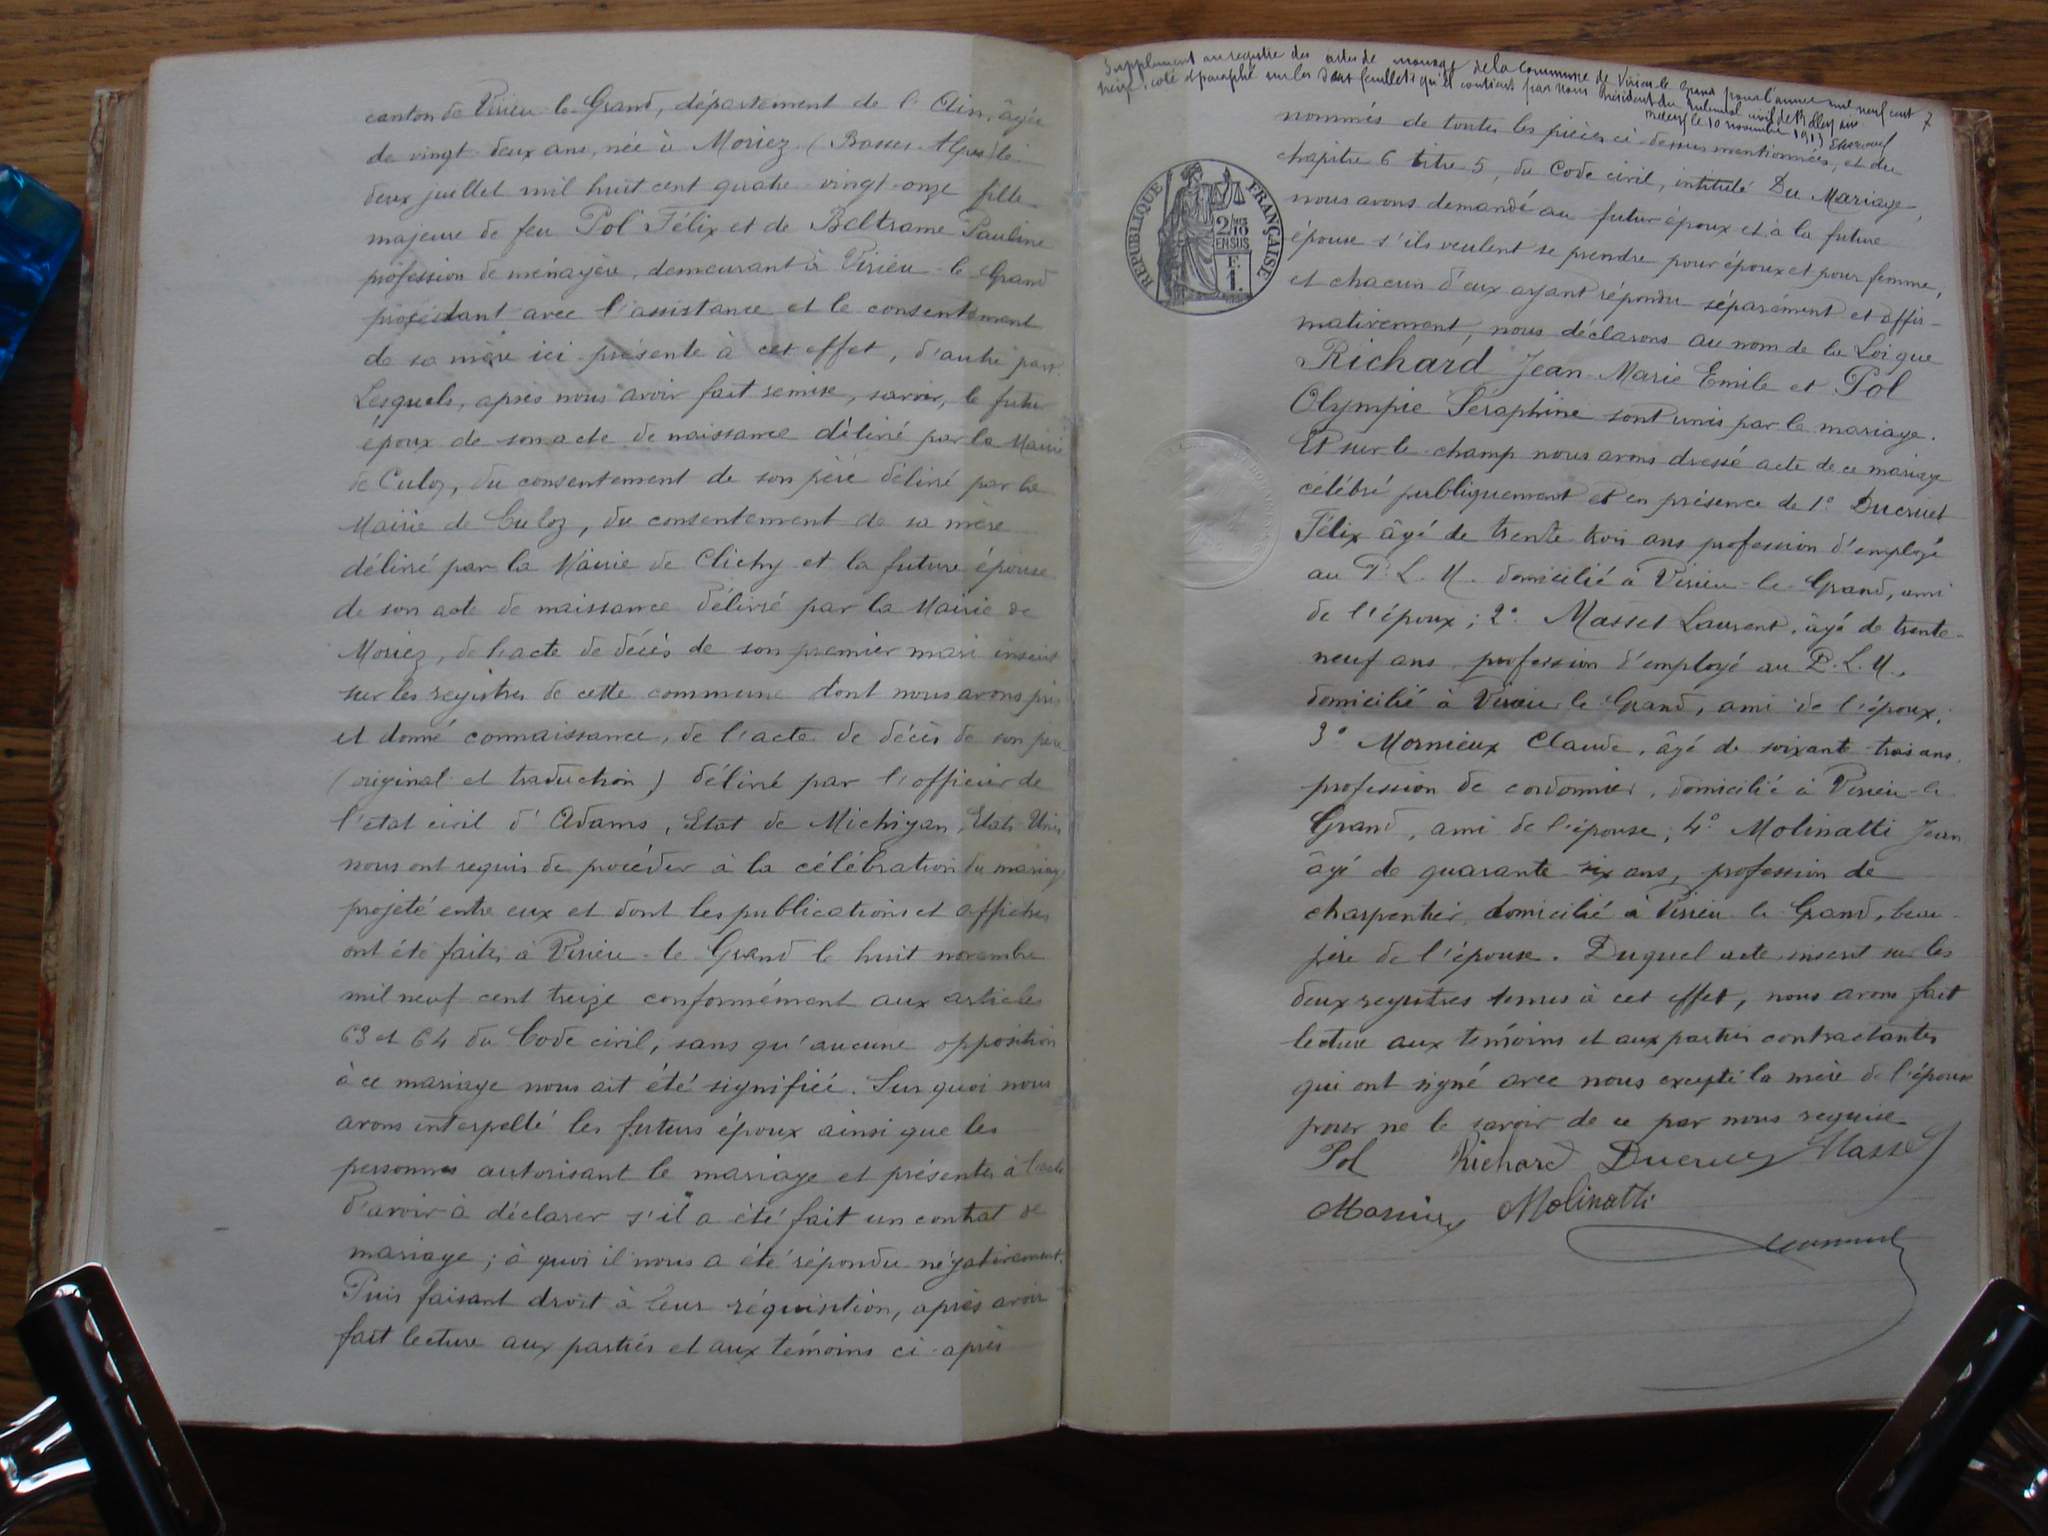 canton de Virieu-le-Grand, département de l'Ain, âgée
de vingt-deux ans, née à Moriez (Basses Alpes) le
deux juillet mil huit cent quatre-vingt-onze fille
majeure de feu Pol Félix et de Beltrame Pauline
profession de ménagère, demeurant à Virieu-le-Grand
procédant avec l'assistance et le consentement
de sa mère ici présente à cet effet, d'autre part.
Lesquels, après nous avoir fait remise, savoir, le futur
époux de son acte de naissance délivré par la Mairie
de Culoz, du consentement de son père délivré par la
Mairie de Culoz, du consentement de sa mère
délivré par la Mairie de Clichy et la future épouse
de son acte de naissance délivré par la Mairie de
Moriez, de l'acte de décès de son premier mari inscrit
sur les registres de cette commune dont nous avons pris
et donné connaissance, de l'acte de décès de son père
(original et traduction) délivré par l'officier de
l'état civil d'Adams, Etat de Michigan, Etats Unis
nous ont requis de procéder à la célébration du mariage
projeté entre eux et dont les publications et affiches
ont été faites à Virieu-le-Grand le huit novembre
mil neuf cent treize conformément aux articles
63 et 64 du Code civil, sans qu'aucune opposition
à ce mariage nous ait été signifiée. Sur quoi nous
avons interpellé les futurs époux ainsi que les
personnes autorisant le mariage et présentes à l'acte
d'avoir à déclarer s'il a été fait un contrat de
mariage; à quoi il nous a été répondu négativement.
Puis faisant droit à leur réquisition, après avoir
fait lecture aux parties et aux témoins ci-après
Supplément au registre des actes de mariage de la commune de Virieu le Grand pour l'année mil neuf cent
treize, coté et paraphé sur les deux feuillets qu'il contient par nous Président du Tribunal civil de Belley
Belley le 10 novembre 1913
7
nommés de toutes les pièces ci-dessus mentionnées, et du
chapitre 6 titre 5, du Code civil, intitulé Du Mariage,
nous avons demandé au futur époux et à la future
épouse s'ils veulent se prendre pour époux et pour femme,
et chacun d'eux ayant répondu séparément et affir-
mativement, nous déclarons au nom de la Loi que
Richard Jean-Marie Emile et Pol
Olympie Séraphine sont unis par le mariage.
Et sur-le-champ nous avons dressé acte de ce mariage
célébré publiquement et en présence de 1° Ducruet
Félix âgé de trente trois ans profession d'employé
au P. L. M. domicilié à Virieu-le-Grand, ami
de l'époux; 2° Masset Laurent, âgé de trente-
neuf ans, profession d'employé au P. L. M.
domicilié à Virieu le Grand, ami de l'époux;
3° Mornieux Claude, âgé de soixante-trois ans
profession de cordonnier, domicilié à Virieu-le
Grand, ami de l'épouse; 4° Molinatti Jean
âgé de quarante-six ans, profession de
charpentier domicilié à Virieu-le-Grand, beau-
père de l'épouse. Duquel acte inscrit sur les
deux registres tenus à cet effet, nous avons fait
lecture aux témoins et aux parties contractantes
qui ont signé avec nous excepté la mère de l'épouse
pour ne le savoir de ce par nous requise
Pol Richard Ducruet Masset
Mornieux Molinatti
REPUBLIQUE FRANÇAISE
2/10
EN SUS
F.
1.